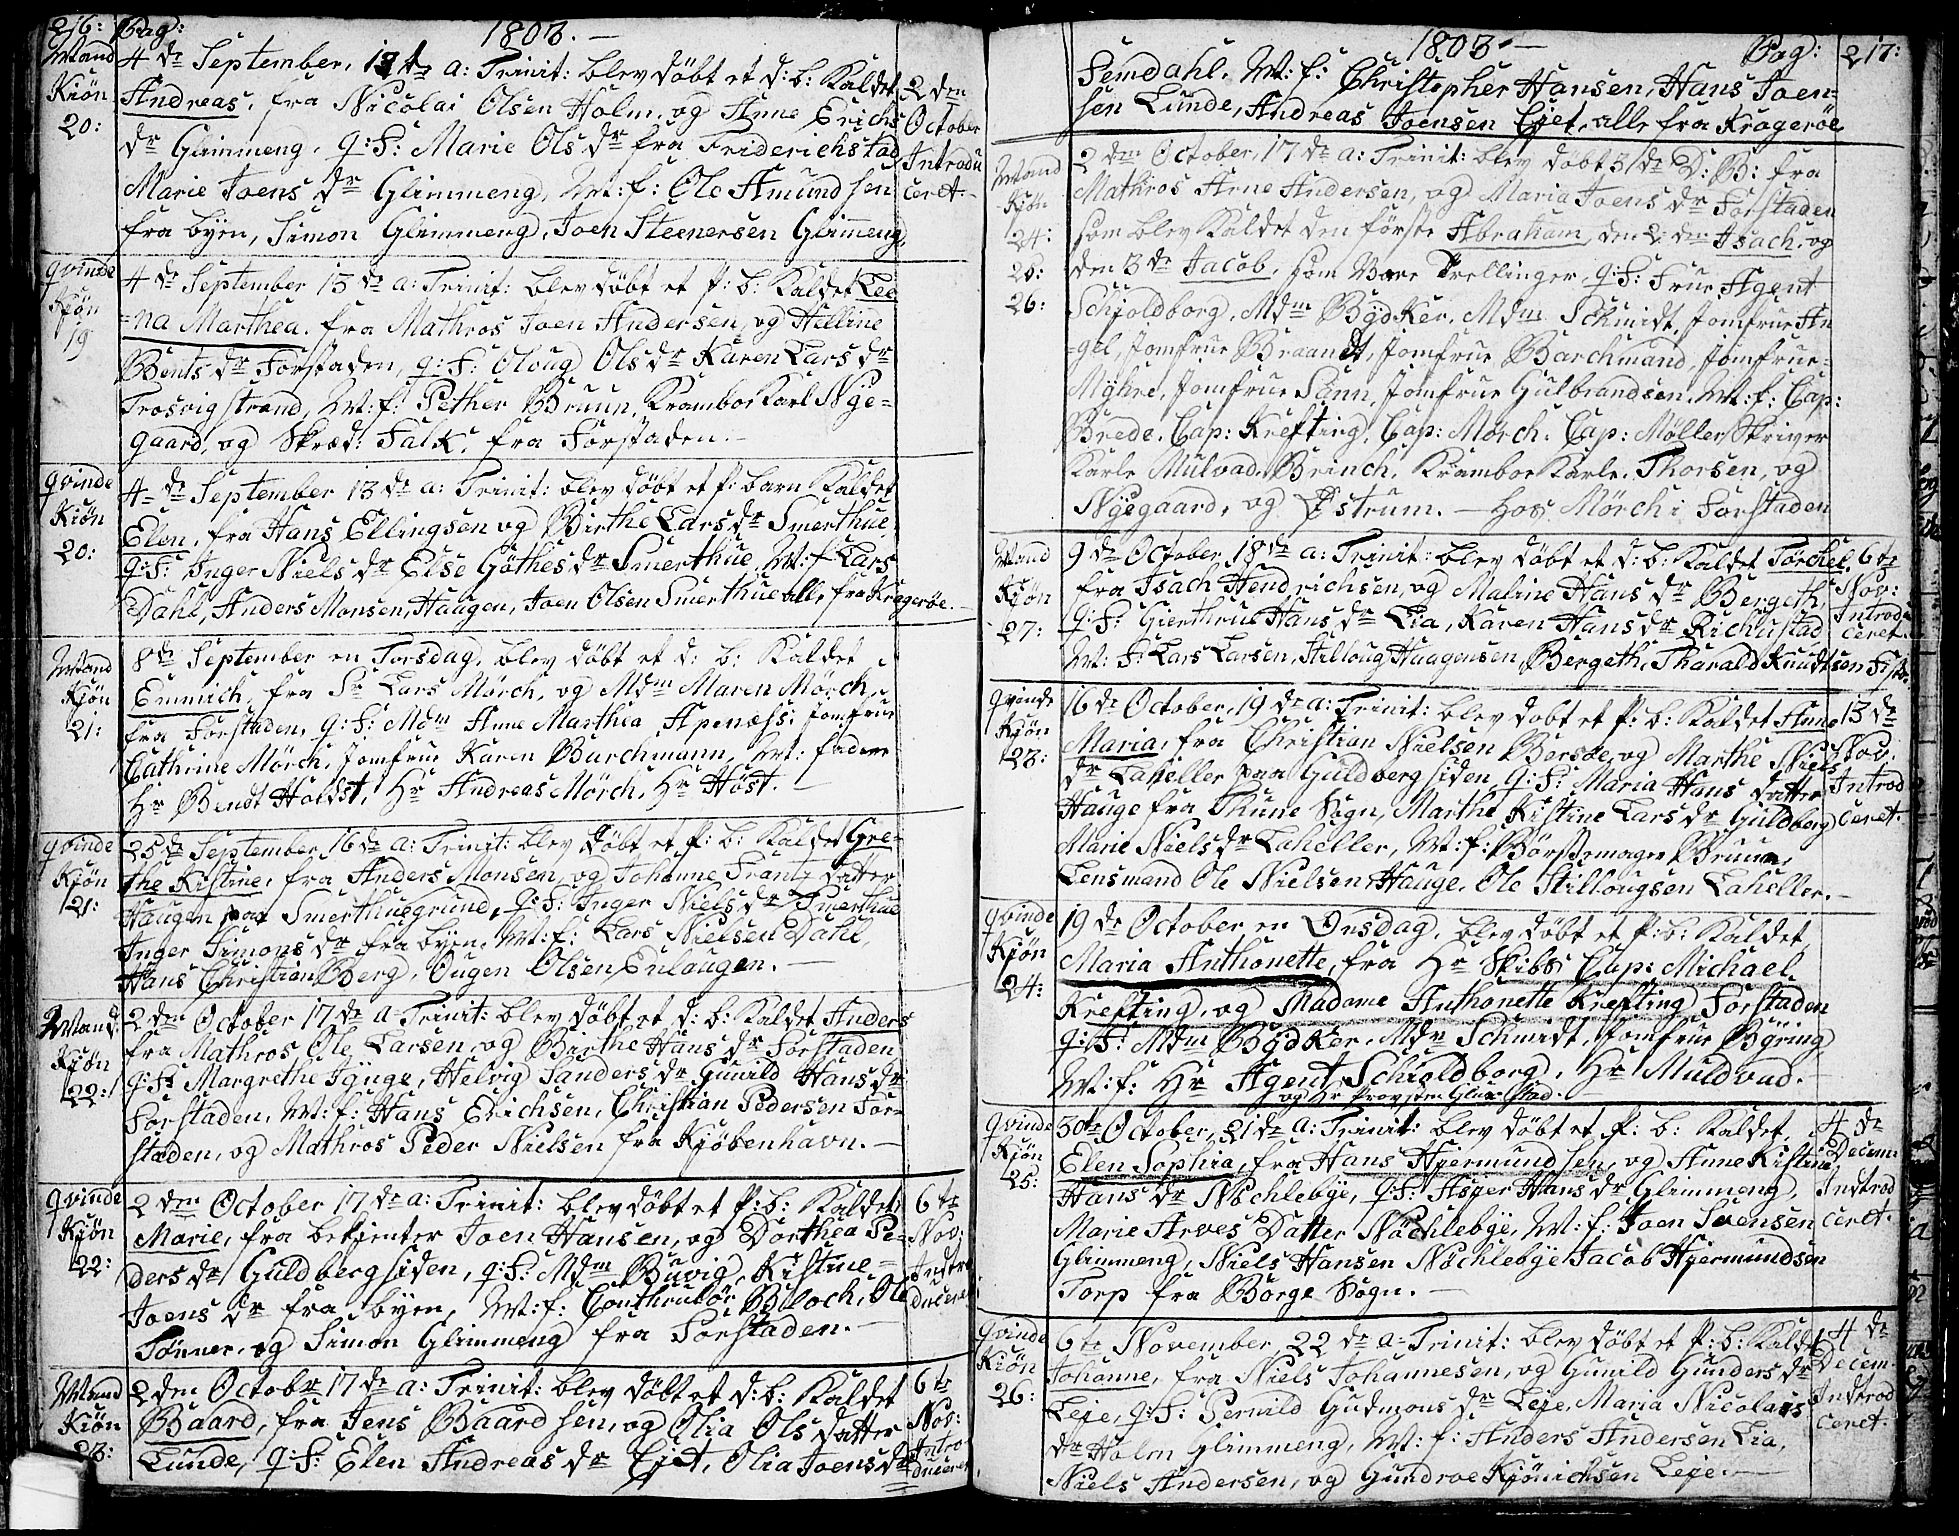 216: Pag: 1803.
Mand
Kiøn
20:
4 de September, 13 de a: Trinit: blev døbt et d: b: Kaldet
Andreas, fra Nicolai Olsen Holm, og Anne Erichs
dr Glimmeng, q: F: Marie Ols dr fra Friderichstad
Marie Joens dr Glimmeng, M: f: Ole Amundsen
fra byen, Simon Glimmeng, Joen Steenersen Glimeng,
2 den
October
Introdu
ceret.
qvinde
Kjøn
19
4 de September 13 de a: Trinit: blev døbt et p: b: Kaldet Lee
=na Marthea, fra Mathros Joen Andersen, og Helline
Bents dr Forstaden, q: F: Oloug Ols dr Karen Lars dr
Trosvigstrand, M: f: Pether Bruun, Kramboe Karl Nye-
gaard, og Skræd: Falk, fra Forstaden.
qvinde
Kiøn
20:
4 de September 13 de a: Trinit: blev døbt et p: barn Kaldet
Elen, fra Hans Ellingsen og Birthe Lars dr Smerthue
q: F: Inger Niels dr Else Göthes dr Smerthue, M: f Lars
Dahl, Anders Monsen, Haugen, Joen Olsen Smerthue alle fra Kragerøe.
Mand
Kjøn
21:
8 de September en Torsdag, blev døbt et d: b: Kaldet
Emmich, fra Sr Lars Mörch, og Mdm Maren Mörch,
fra Forstaden, q: F: Mdm Anne Marthea Apenæss: Jomfrue
Cathrine Mörch, Jomfrue Karen Barchmann, M: faddere
Hr Bendt Holdst, Hr Andreas Mörch, Hr Höst.
qvinde
Kjøn
21:
25 de September, 16 de a: Trinit: blev døbt et p: b: Kaldet Gre-
the Kistine, fra Anders Monsen, og Johanne Frantz datter
Haugen paa Smerthuegrund, q: F: Inger Niels dr Smerthue
Inger Simons dr fra byen, M: f: Lars Nielsen Dahl,
Hans Christian Berg, Ougen Olsen Enlaugen.
Mand:
Kjøn
22:
2 den October 17 de a Trinit: blev døbt et d: b: Kaldet Anders
fra Mathros Ole Larsen, og Birthe Hans dr Forstaden
q: F: Margrethe Jynge, Helvig Sanders dr Gunild Hans dr
Forstaden, M: f: Hans Erichsen, Christian Pedersen For-
staden, og Mathros Peder Nielsen fra Kjöbenhavn.
qvinde
Kjøn
22:
2 den October 17 de a: Trinit: blev døbt et p: b: Kaldet:
Marie, fra betienter Joen Hansen, og Dorthea Pe-
ders dr Guldbergsiden, q: F: Mdm Buvig, Kistine
Joens dr fra byen, M: f: Conthrulör Bloch, Ole
Tønner, og Simon Glimmeng fra Forstaden.
6 te
Nov:
Indtro
duceret
Mand
Kiøn
23:
2 den Octobr 17 de a: Trinit: blev døbt et d: b: Kaldet
Baard, fra Jens Baardsen, og Olia Ols datter
Lunde, q: F: Elen Andreas dr Ejet, Olia Joens dr
6 te
Nov:
Intro-
duceret
1803. Pag: 217:
Semdahl, M: f: Christopher Hansen, Hans Joen-
sen Lunde, Andreas Joensen Ejet, alle fra Kragerøe
Mand
Kjøn
24:
25:
26:
2 den October, 17 de a: Trinit: blev døbt 3 de D: B: fra
Mathros Arne Andersen, og Maria Joens dr Forstaden
som blev Kaldet den förste Abraham, den 2 den Isach, og
den 3 de Jacob, som Vare Trellinger, q: F: Frue Agent
Schjoldborg, Mdm Bydker, Mdm Schmidt, Jomfrue An
=gel, Jomfrue Braandt, Jomfrue Barchmand, Jomfrue
Myhre, Jomfrue Sann, Jomfrue Gulbrandsen. M: f: Cap:
Brede, Cap: Krefting, Cap: Mörch, Cap: Møller, Skriver
Karle Mulvad, Brinch, Kramboe Karle, Thorsen, og
Nyegaard, og Østrum. — Hos Mörch i Forstaden
Mand
Kjøn
27:
9 de October, 18 de a: Trinit: blev döbt et d: b: Kaldet Torchel,
fra Isach Hendrichsen, og Maline Hans dr Bergeth,
q: F: Gierthrue Hans dr Lia, Karen Hans dr Richustad
M: F: Lars Larsen, Stilloug Haagensen Bergeth, Tharald Knudtsen
6 te
Nov:
Introdu
ceret.
qvinde
Kjøn
23:
16 de October, 19 de a: Trinit: blev døbt et p: b: Kaldet Anne
Maria, fra Christian Nielsen Bersøe, og Marthe Niels
dr Laheller paa Guldbergsiden, q: F: Maria Hans datter
Hauge fra Thune Sogn, Marthe Kistine Lars dr Guldberg
Marie Niels dr Laheller, M: f: Børssemager Bruun,
Lensmand Ole Nielsen Hauge, Ole Stillougsen Laheller.
13 de
Nov:
Introd
ceret.
qvinde
Kjøn
24:
19 de October en Onsdag, blev døbt et p: b: Kaldet
Maria Anthonette, fra Hr Skibs Cap: Michael
Krefting, og Madame Anthonette Krefting Forstaden
q: F: Mdm Bydker, Mdm Schmidt, Jomfrue Byring
M: f: Hr Agent Schioldborg, Hr Muldvad.
og Hr Provsten Glückstad.
qvinde
Kjøn
25:
30 te October, 21 de a: Trinit: blev døbt et p: b: Kaldet,
Elen Sophia, fra Hans Hjermundsen, og Anne Kistine
Hans dr Nöchlebye, q: F: Asper Hans dr Glimmeng,
Marie Arves Datter Nöchlebye, M: f: Joen Svensen
Glimmeng, Niels Hansen Nöchlebye Jacob Hjermundsen
Torp fra Borge Sogn.
4 de
Decem
Indtrod
ceret.
qvinde
Kiøn
26:
6 te November, 22 de a: Trinit: blev døbt et p: b: Kaldet
Johanne, fra Niels Johannesen, og Gunild Gunders dr
Leje, q: F: Pernild Gudmons dr Leje, Maria Nicolais
dr Holm Glimmeng, M: f: Anders Andersen Lia,
Niels Andersen, og Gundroe Kjönichsen Leje.
4 de
Decem.
Indtrod
ceret.